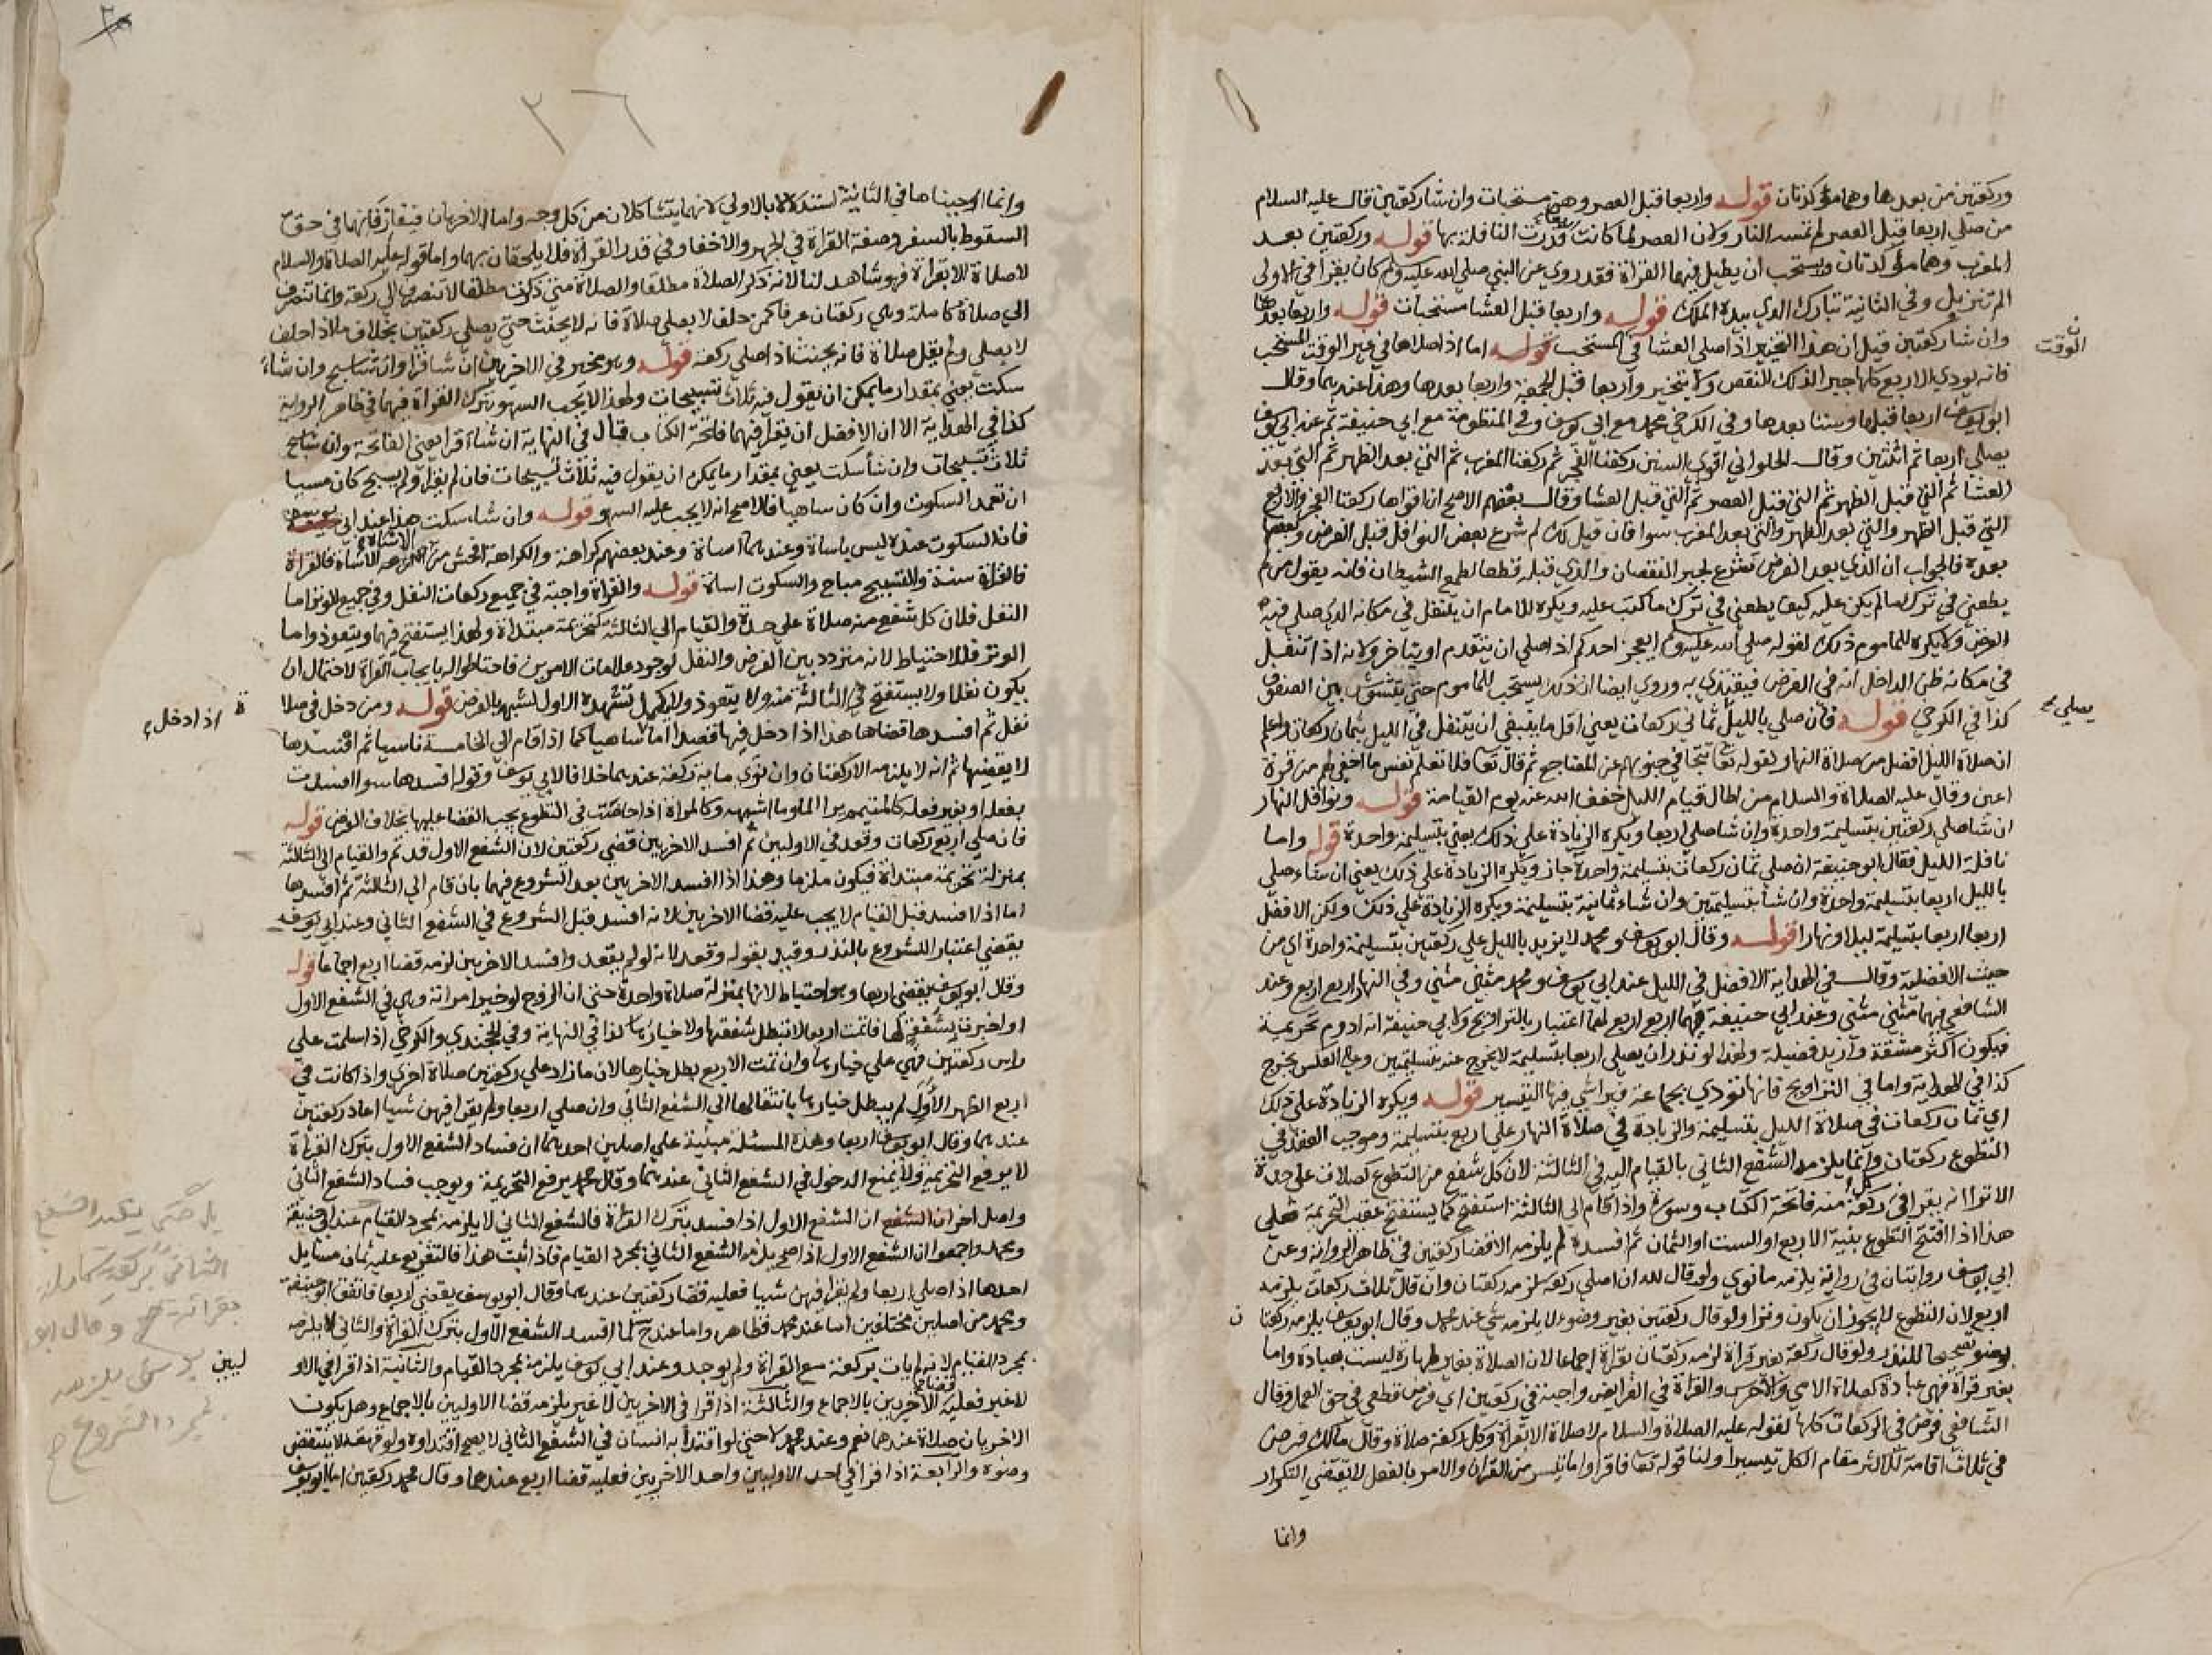 وركعتين من بعدها وهما مؤكدتان قوله واربعا قبل العصر وهي مستحبات وان شا ركعتين قال عليه السلام
من صلي اربعا قبل العصر لم تمسه النار ولان العصر لما كانت قدرت النافلة بها قوله وركعتين بعد
المغرب وهما مؤكدتان ويستحب ان يطيل فيهما القراة فقد روي عن النبي صلي الله عليه وسلم كان يقرا في الاولى
الم تنزيل وفي الثانية تبارك الذي بيده الملك قوله واربعا قبل العشا مستحبات قوله واربعا بعدها
وان شا ركعتين قيل ان هذا التخيير اذا صلي العشا في المستحب قوله اما اذا صلاها في غير الوقت المستحب
الوقت
فانه يودي الاربع كلها جبرا لذلك النقص ولا يتخير واربعا قبل الجمعة واربعا بعدها وهذا عندهما وقال
ابو يوسف اربعا قبلها وستا بعدها وفي الكرخي محمد مع ابي يوسف وفي المنظومة مع ابي حنيفة ثم عند ابي يوسف
يصلي اربعا ثم اثنتين وقال الحلواني اقوي السنن ركعتا الفجر ثم ركعتا المغرب ثم التي بعد الظهر ثم التي بعد
العشا ثم التي قبل الظهر ثم التي قبل العصر ثم التي قبل العشا وقال بعضهم الاصح ان اقواها ركعتا الفجر والاربع
التي قبل الظهر والتي بعد الظهر والتي بعد المغرب سوا فان قيل لك لم شرع بعض النوافل قبل الفرض وبعضها
بعده فالجواب ان الذي بعد الفرض شرع لجبر النقصان والذي قبله قطعا لطمع الشيطان فانه يقول من لم
يطعني في ترك ما لم يكتب عليه كيف يطعني في ترك ما كتب عليه ويكره للامام ان يتنفل في مكانه الذي صلي فيه
الفرض ولا يكره للماموم ذلك لقوله صلي الله عليه وسلم ايعجز احدكم اذا صلي ان يتقدم او يتاخر ولانه اذا تنفل
في مكانه ظن الداخل انه في الفرض فيقتدي به وروي ايضا ان ذلك يستحب للماموم حتي يتشوش بين الصفوف
كذا في الكرخي قوله فان صلي بالليل ثماني ركعات يعني اقل ما ينبغي ان يتنفل في الليل بثمان ركعات واعلم
يصلي
ان صلاة الليل افضل من صلاة النهار لقوله تعا تتجافي جنوبهم عن المضاجع ثم قال تعا فلا تعلم نفس ما اخفي لهم من قرة
اعين وقال عليه الصلاة والسلام من اطال قيام الليل خفف الله عنه يوم القيامة قوله ونوافل النهار
ان شا صلي ركعتين بتسليمة واحدة وان شا صلي اربعا ويكره الزيادة علي ذلك يعني بتسليمة واحدة قوله واما
نافلة الليل فقال ابو حنيفة ان صلي ثمان ركعات بتسليمة واحدة جاز ويكره الزيادة علي ذلك يعني ان شاء صلي
بالليل اربعا بتسليمة واحدة وان شا بتسليمتين وان شاء ثمانية بتسليمة ويكره الزيادة علي ذلك ولكن الافضل
اربعا اربعا بتسليمة ليلا ونهارا قوله وقال ابو يوسف ومحمد لا يزيد بالليل علي ركعتين بتسليمة واحدة اي من
حيث الافضلية وقال في الهداية الافضل في الليل عند ابي يوسف ومحمد مثني مثني وفي النهار اربع اربع وعند
الشافعي فيهما مثني مثني وعند ابي حنيفة فيهما اربع اربع لهما اعتبار بالتراويح ولابي حنيفة انه ادوم تحريمة
فيكون اكثر مشقة وازيد فضيلة ولهذا لو نذر ان يصلي اربعا بتسليمة لا يخرج عنه بتسليمتين وعلى العكس يخرج
كذا في الهداية واما في التراويح فانها تودي بجماعة فيراعي فيها التيسير قوله ويكره الزيادة علي ذلك
اي ثمان ركعات في صلاة الليل بتسليمة والزيادة في صلاة النهار علي اربع بتسليمة وموجب العقد في
التطوع ركعتان وانما يلزمه الشفع الثاني بالقيام اليه في الثالثة لان كل شفع من التطوع كصلاة علي حدة
الا ترا انه يقرا في كل ركعة منه فاتحة الكتاب وسورة واذا قام الي الثالثة استفتح كما يستفتح عقب التحريمة فعلي
هذا اذا افتتح التطوع بنية الاربع او الست او الثمان ثم افسده لم يلزمه الا قضا ركعتين في ظاهر الرواية وعن
ابي يوسف روايتان في رواية يلزمه ما نوي ولو قال لله ان اصلي ركعة لزمه ركعتان وان قال ثلاث ركعات يلزمه
اربع لان التطوع لا يجوز ان يكون وترا ولو قال ركعتين بغير وضوء لا يلزمه شي عند محمد وقال ابو يوسف يلزمه ركعتان
بوضو تصحيحا للنذر ولو قال ركعة بغير قراة لزمه ركعتان بقراة اجماعا لان الصلاة بغير طهارة ليست بعبادة واما
بغير قراة فهي عبادة كصلاة الامي والاخرس والقراة في الفرائض واجبة في ركعتين اي فرض قطعي في حق العمل وقال
الشافعي فرض في الركعات كلها لقوله عليه الصلاة والسلام لا صلاة الا بقراة وكل ركعة صلاة وقال مالك فرض
في ثلاث اقامة للاكثر مقام الكل تيسيرا ولنا قوله تعا فاقراوا ما تيسر من القران والامر بالفعل لا يقتضي التكرار
وانما
٣٦
وانما اوجبناها في الثانية استدلالا بالاولي لانهما يتشاكلان من كل وجه واما الاخريان فيفارقانهما في حق
السقوط بالسفر وصفة القراة في الجهر والاخفا وفي قدر القراة فلا يلحقان بهما واما قوله عليه الصلاة والسلام
لا صلاة الا بقراة فهو شاهد لنا لانه ذكر الصلاة مطلقا والصلاة متي ذكرت مطلقا لا تنصرف الي ركعة وانما تنصرف
الي صلاة كاملة وهي ركعتان عرفا كمن حلف لا يصلي صلاة فانه لا يحنث حتي يصلي ركعتين بخلاف ما اذا حلف
لا يصلي ولم يقل صلاة فانه يحنث اذا صلي ركعة قوله وهو مخير في الاخريين ان شا قرا وان شا سبح وان شاء
سكت يعني بمقدار ما يمكن ان يقول فيه ثلاث تسبيحات ولهذا لا يجب السهو بترك القراة فيهما في ظاهر الرواية
كذا في الهداية الا ان الافضل ان يقرا فيهما فاتحة الكتاب قال في النهاية ان شاء قرا يعني الفاتحة وان شا سبح
ثلاث تسبيحات وان شا سكت يعني بمقدار ما يمكن ان يقول فيه ثلاث تسبيحات فان لم يقرا ولم يسبح كان مسيا
ان تعمد السكوت وان كان ساهيا فالاصح انه لا يجب عليه السهو قوله وان شاء سكت هذا عند ابي يوسف
فان السكوت عنده ليس باساة وعندهما اساة وعند بعضهم كراهة والكراهة افحش من الاساة فالقراة
فالقراة سنة والتسبيح مباح والسكوت اساة قوله والقراة واجبة في جميع ركعات النفل وفي جميع الوتر اما
النفل فلان كل شفع منه صلاة علي حدة والقيام الي الثالثة كتحريمة مبتداة ولهذا يستفتح فيها ويتعوذ واما
الوتر فللاحتياط لانه متردد بين الفرض والنفل لوجود علامات الامرين فاحتاطوا له بايجاب القراة لاحتمال ان
يكون نفلا ولا يستفتح في الثالثة منه ولا يتعوذ ولا يكمل تشهده الاول لشبهه بالفرض قوله ومن دخل في صلا
ة اذا دخل
نفل ثم افسدها قضاها هذا اذا دخل فيها قصدا اما ساهيا كما اذا قام الي الخامسة ناسيا ثم افسدها
لا يقضيها ثم انه لا يلزمه الا ركعتان وان نوي ماية ركعة عندهما خلافا لابي يوسف وقوله افسدها سوا افسدت
بفعله او بغير فعله كالمتيمم يرا الماء وما اشبهه وكالمراة اذا حاضت في التطوع يجب القضا عليها بخلاف الفرض قوله
فان صلي اربع ركعات وقعد في الاوليين ثم افسد الاخريين قضي ركعتين لان الشفع الاول قد تم والقيام الي الثالثة
بمنزلة تحريمة مبتداة فيكون ملزما وهذا اذا افسد الاخريين بعد الشروع فيهما بان قام الي الثالثة ثم افسدها
اما اذا افسد قبل القيام لا يجب عليه قضا الاخريين لانه افسد قبل الشروع في الشفع الثاني وعند ابي يوسف
يقضي اعتبارا للشروع بالنذر وقيد بقوله وقعد لانه لو لم يقعد وافسد الاخريين لزمه قضا اربع اجماعا قوله
وقال ابو يوسف يقضي اربعا وهو احتياط لانها بمنزلة صلاة واحدة حتي ان الزوج لو خير امراته وهي في الشفع الاول
او اخبرت بشفعة لها فاتمت اربعا لا تبطل شفعتها ولا خيارها كذا في النهاية وفي الخجندي والكرخي اذا سلمت علي
راس ركعتين فهي علي خيارها وان تمت الاربع بطل خيارها لان ما زاد علي ركعتين صلاة اخري واذا كانت في
اربع الظهر الاول لم يبطل خيارها بانتقالها الي الشفع الثاني وان صلي اربعا ولم يقرا فيهن شيا اعاد ركعتين
عندهما وقال ابو يوسف اربعا وهذه المسئلة مبنية علي اصلين احدهما ان فساد الشفع الاول بترك القراة
لا يرفع التحريمة ولا يمنع الدخول في الشفع الثاني عندهما وقال محمد يرفع التحريمة ويوجب فساد الشفع الثاني
واصل اخر ان الشفع الاول اذا فسد بترك القراة فالشفع الثاني لا يلزمه بمجرد القيام عند ابي حنيفة
ومحمد واجمعوا ان الشفع الاول اذا صح يلزمه الشفع الثاني بمجرد القيام فاذا ثبت هذا فالتفريع عليه ثمان مسايل
احدها اذا صلي اربعا ولم يقرا فيهن شيا فعليه قضا ركعتين عندهما وقال ابو يوسف يقضي اربعا فاتفق ابو حنيفة
ومحمد من اصلين مختلفين اما عند محمد فظاهر واما عند ح لما افسد الشفع الاول بترك القراة والثاني لا يلزمه
بمجرد القيام لانه لم يات بركعة مع القراة ولم يوجد وعند ابي يوسف يلزمه بمجرد القيام والثانية اذا قرا في الاو
ليين
لا غير فعليه قضا الاخريين بالاجماع والثالثة اذا قرا في الاخريين لا غير يلزمه قضا الاوليين بالاجماع وهل يكون
الاخريان صلاة عندهما نعم وعند محمد لا حتي لو اقتدا به انسان في الشفع الثاني لا يصح اقتداوه ولو قهقه لا ينتقض
وضوه والرابعة اذا قرا في احد الاوليين واحد الاخريين فعليه قضا اربع عندهما وقال محمد ركعتين اما ابو يوسف